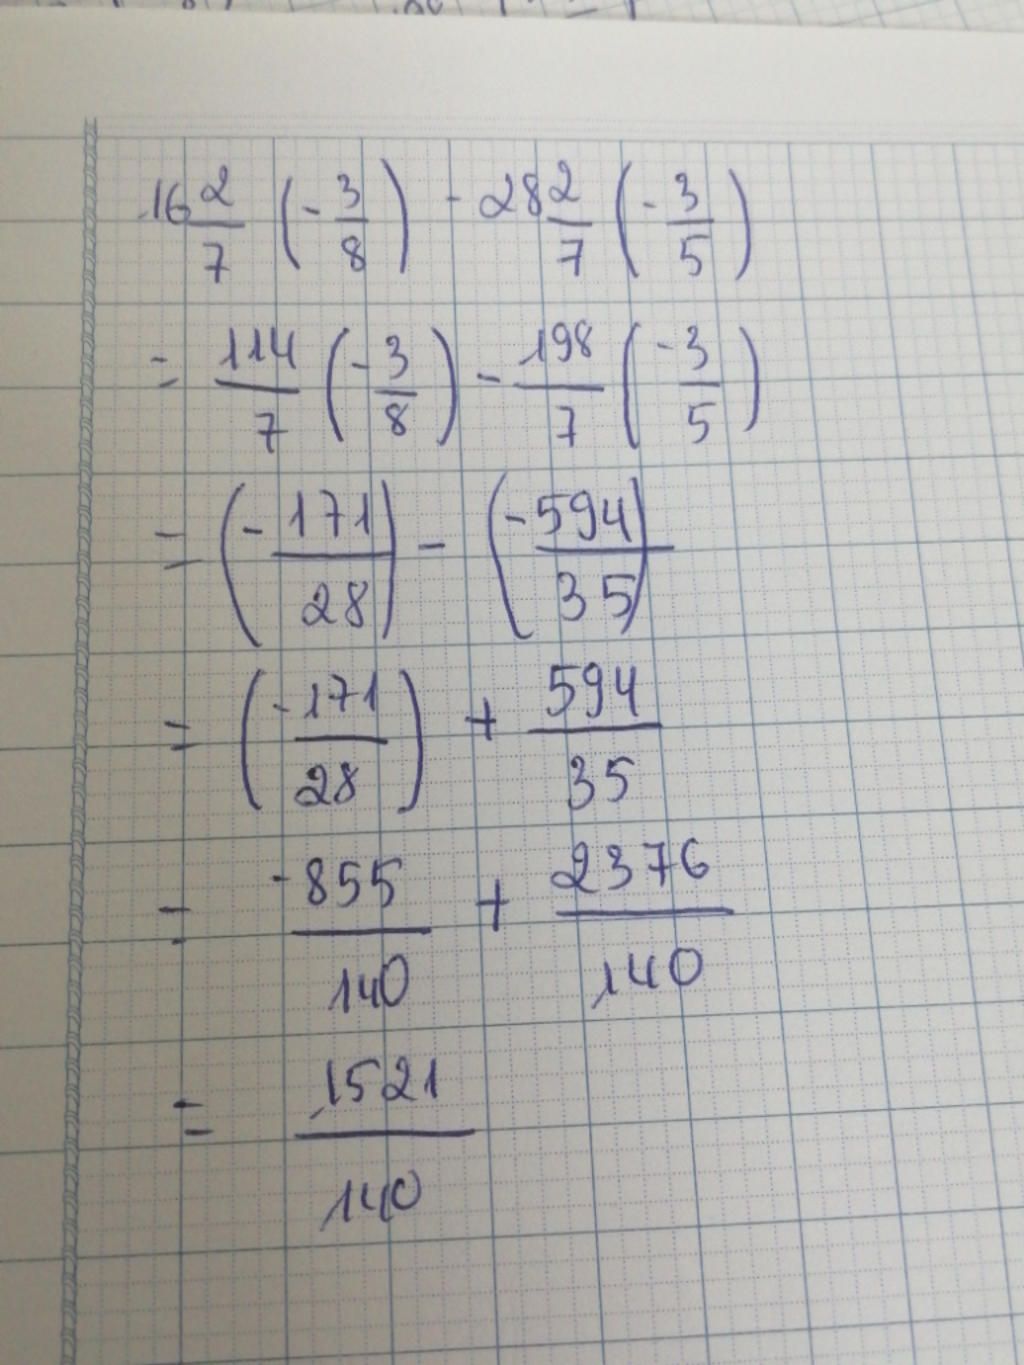 16 2/7 (-3/8) - 28 2/7 (-3/5)
= 114/7 (-3/8) - 198/7 (-3/5)
= (-171/28) - (-594/35)
= (-171/28) + 594/35
= -855/140 + 2376/140
= 1521/140